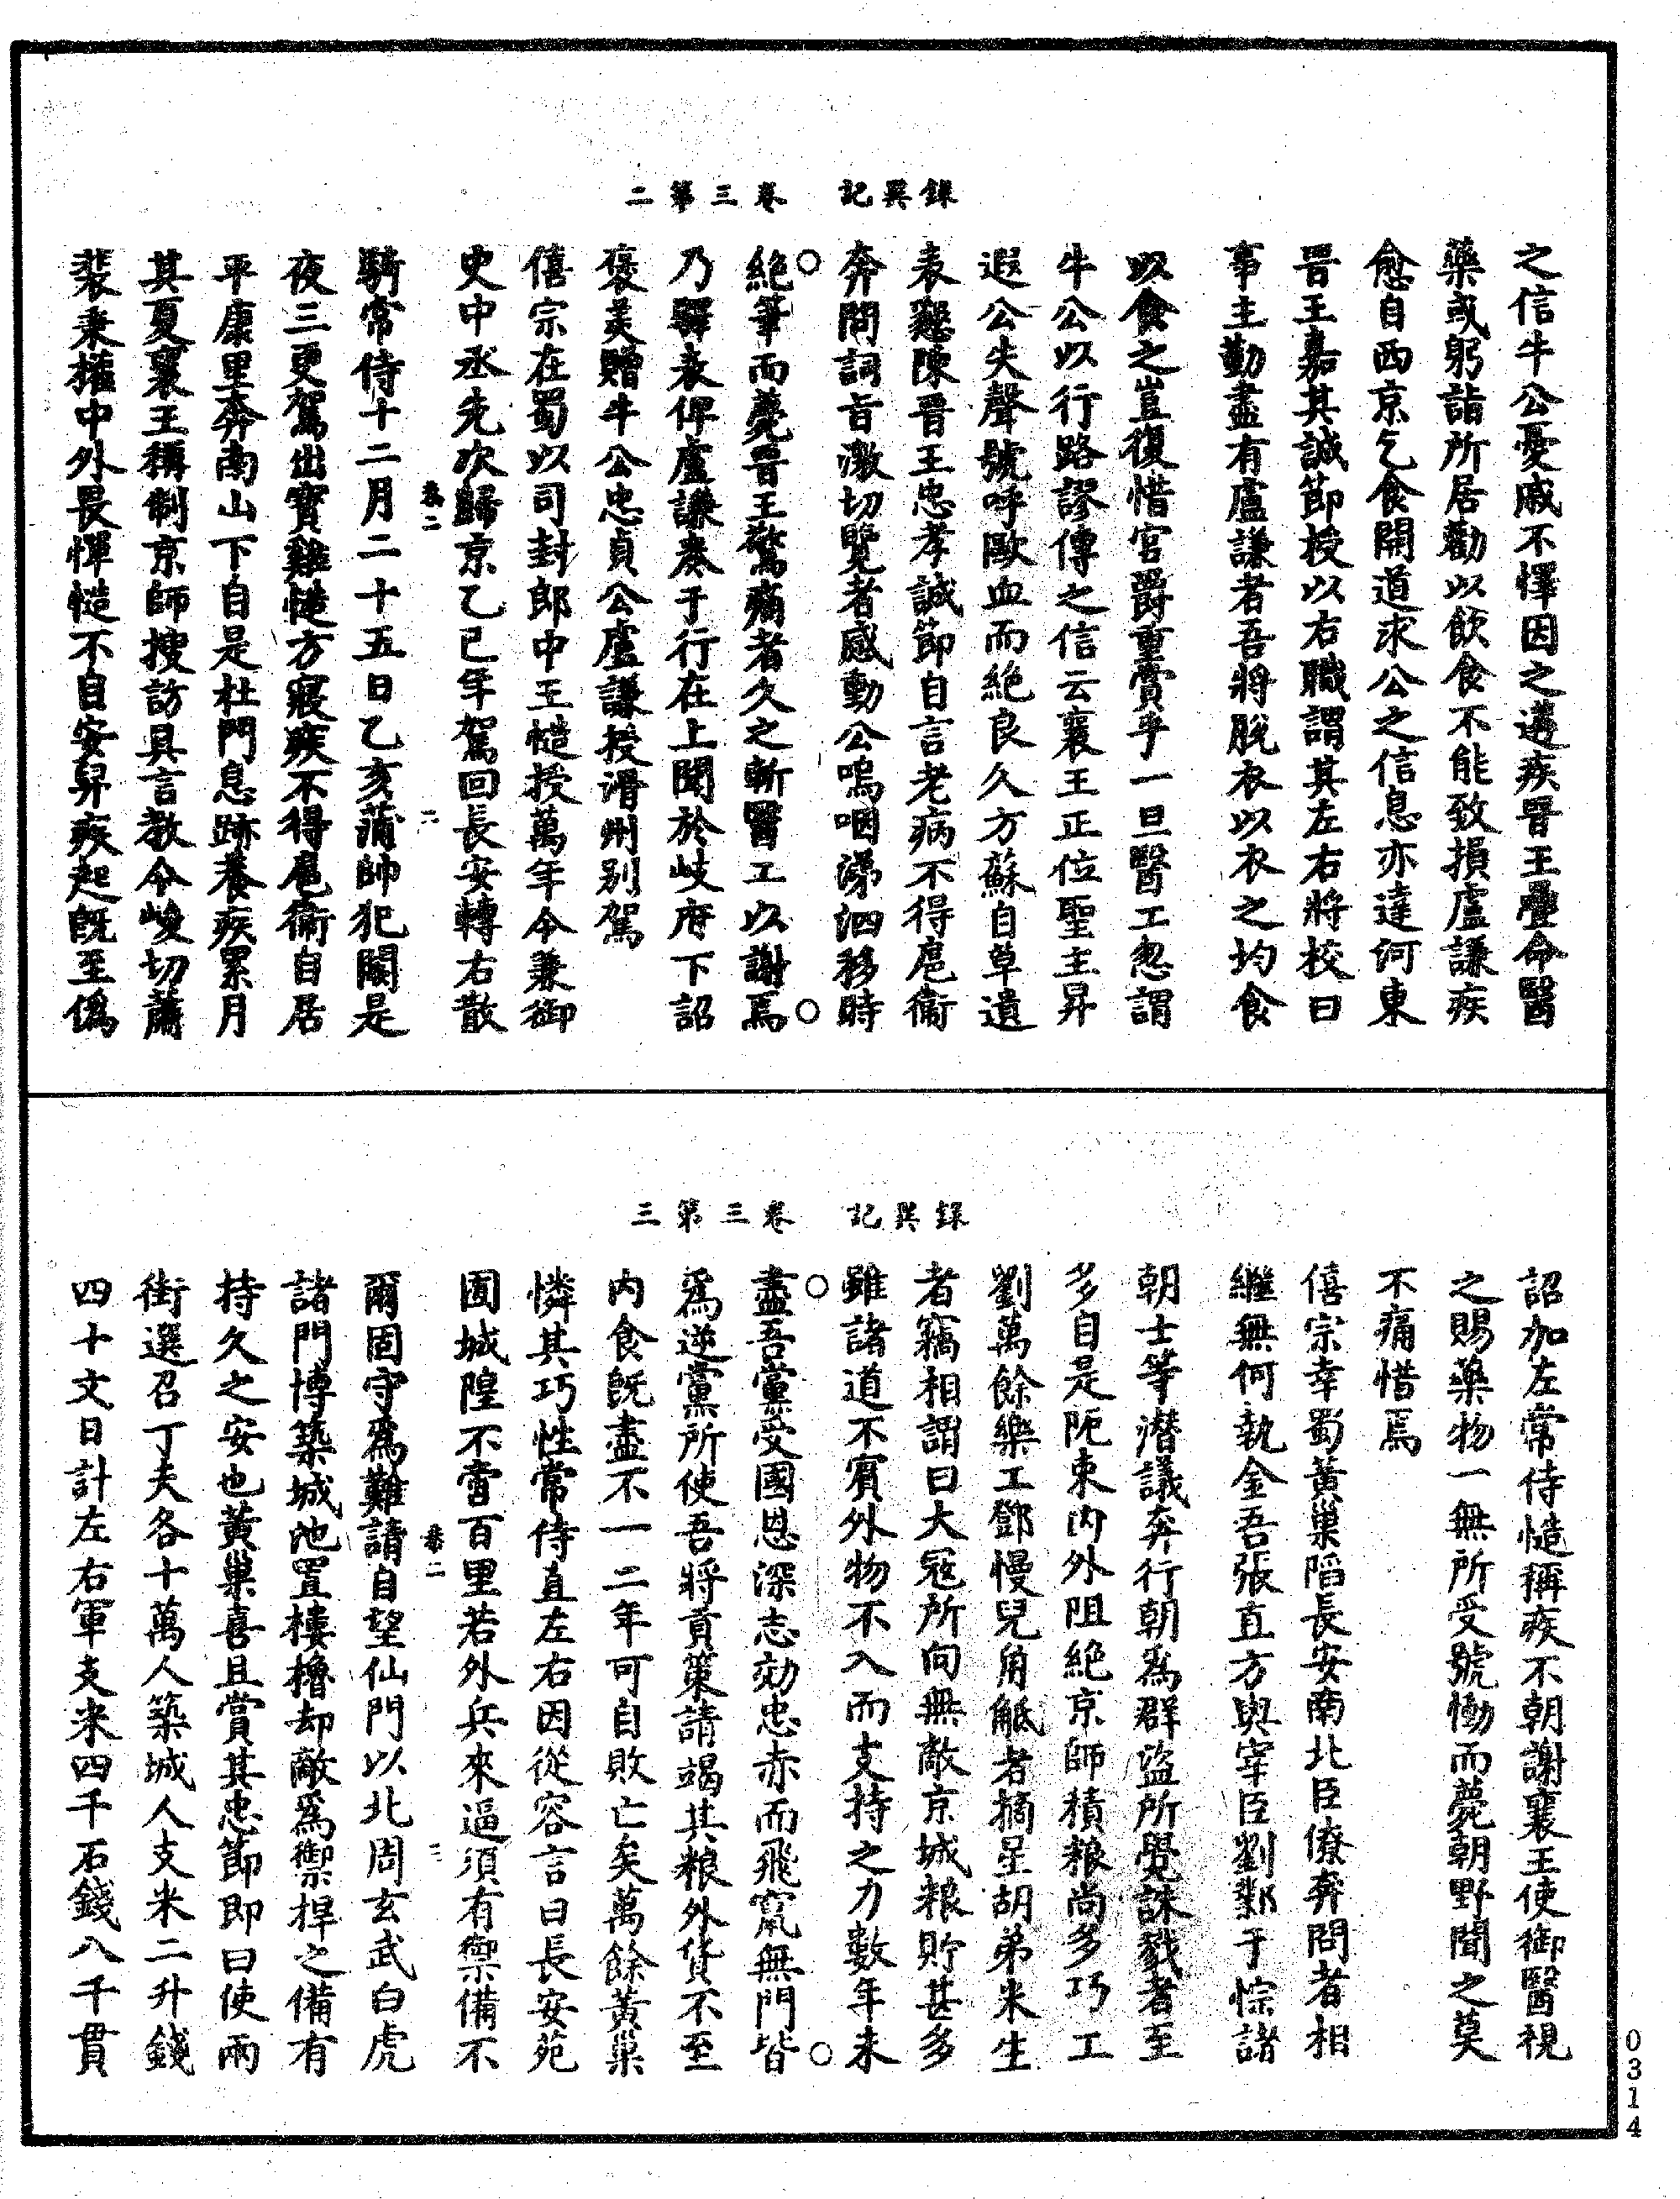 錄異記　卷三第二
之信牛公憂戚不懌因之遘疾晋王疊命醫
藥或躬詣所居勸以飲食不能致損盧謙疾
愈自西京乞食開道求公之信息亦達河東
晋王嘉其誠節授以右職謂其左右將校曰
事主勤盡有盧謙者吾將脫衣以衣之均食
以食之豈復惜官爵重賞乎一旦醫工忽謂
牛公以行路謬傳之信云襄王正位聖主昇
遐公失聲號呼歐血而絶良久方蘇自草遺
表懇陳晋王忠孝誠節自言老病不得扈衞
奔問詞旨激切覽者感動公嗚咽涕泗移時
絶筆而薨晋王驚痛者久之斬醫工以謝焉
乃驛表俾盧謙奏于行在上聞於岐府下詔
褒美贈牛公忠貞公盧謙授滑州别駕
僖宗在蜀以司封郎中王慥授萬年令兼御
史中丞先次歸京乙巳年駕回長安轉右散
卷二
二
騎常侍十二月二十五日乙亥蒲帥犯闕是
夜三更駕出寶雞慥方寢疾不得扈衞自居
平康里奔南山下自是杜門息跡養疾累月
其夏襄王稱制京師搜訪具言教令峻切蕭
裴秉權中外畏憚慥不自安舁疾起旣至僞
錄異記　卷三第三
詔加左常侍慥稱疾不朝謝襄王使御醫視
之賜藥物一無所受號慟而薨朝野聞之莫
不痛惜焉
僖宗幸蜀黃巢陷長安南北臣僚奔問者相
繼無何執金吾張直方與宰臣劉鄴于悰諸
朝士等潜議奔行朝爲群盜所覺誅戮者至
多自是阨束内外阻絶京師積粮尚多巧工
劉萬餘樂工鄧慢兒角觝者摘星胡弟米生
者竊相謂曰大寇所向無敵京城粮貯甚多
雖諸道不賓外物不入而支持之力數年未
盡吾黨受國恩深志効忠赤而飛竄無門皆
爲逆黨所使吾將貢策請竭其粮外貨不至
内食旣盡不一二年可自敗亡矣萬餘黃巢
憐其巧性常侍直左右因從容言曰長安苑
囿城隍不啻百里若外兵來逼須有禦備不
卷二
三
爾固守爲難請自望仙門以北周玄武白虎
諸門博築城池置樓櫓却敵爲禦捍之備有
持久之安也黃巢喜且賞其忠節即曰使兩
街選召丁夫各十萬人築城人支米二升錢
四十文日計左右軍支米四千石錢八千貫
0314